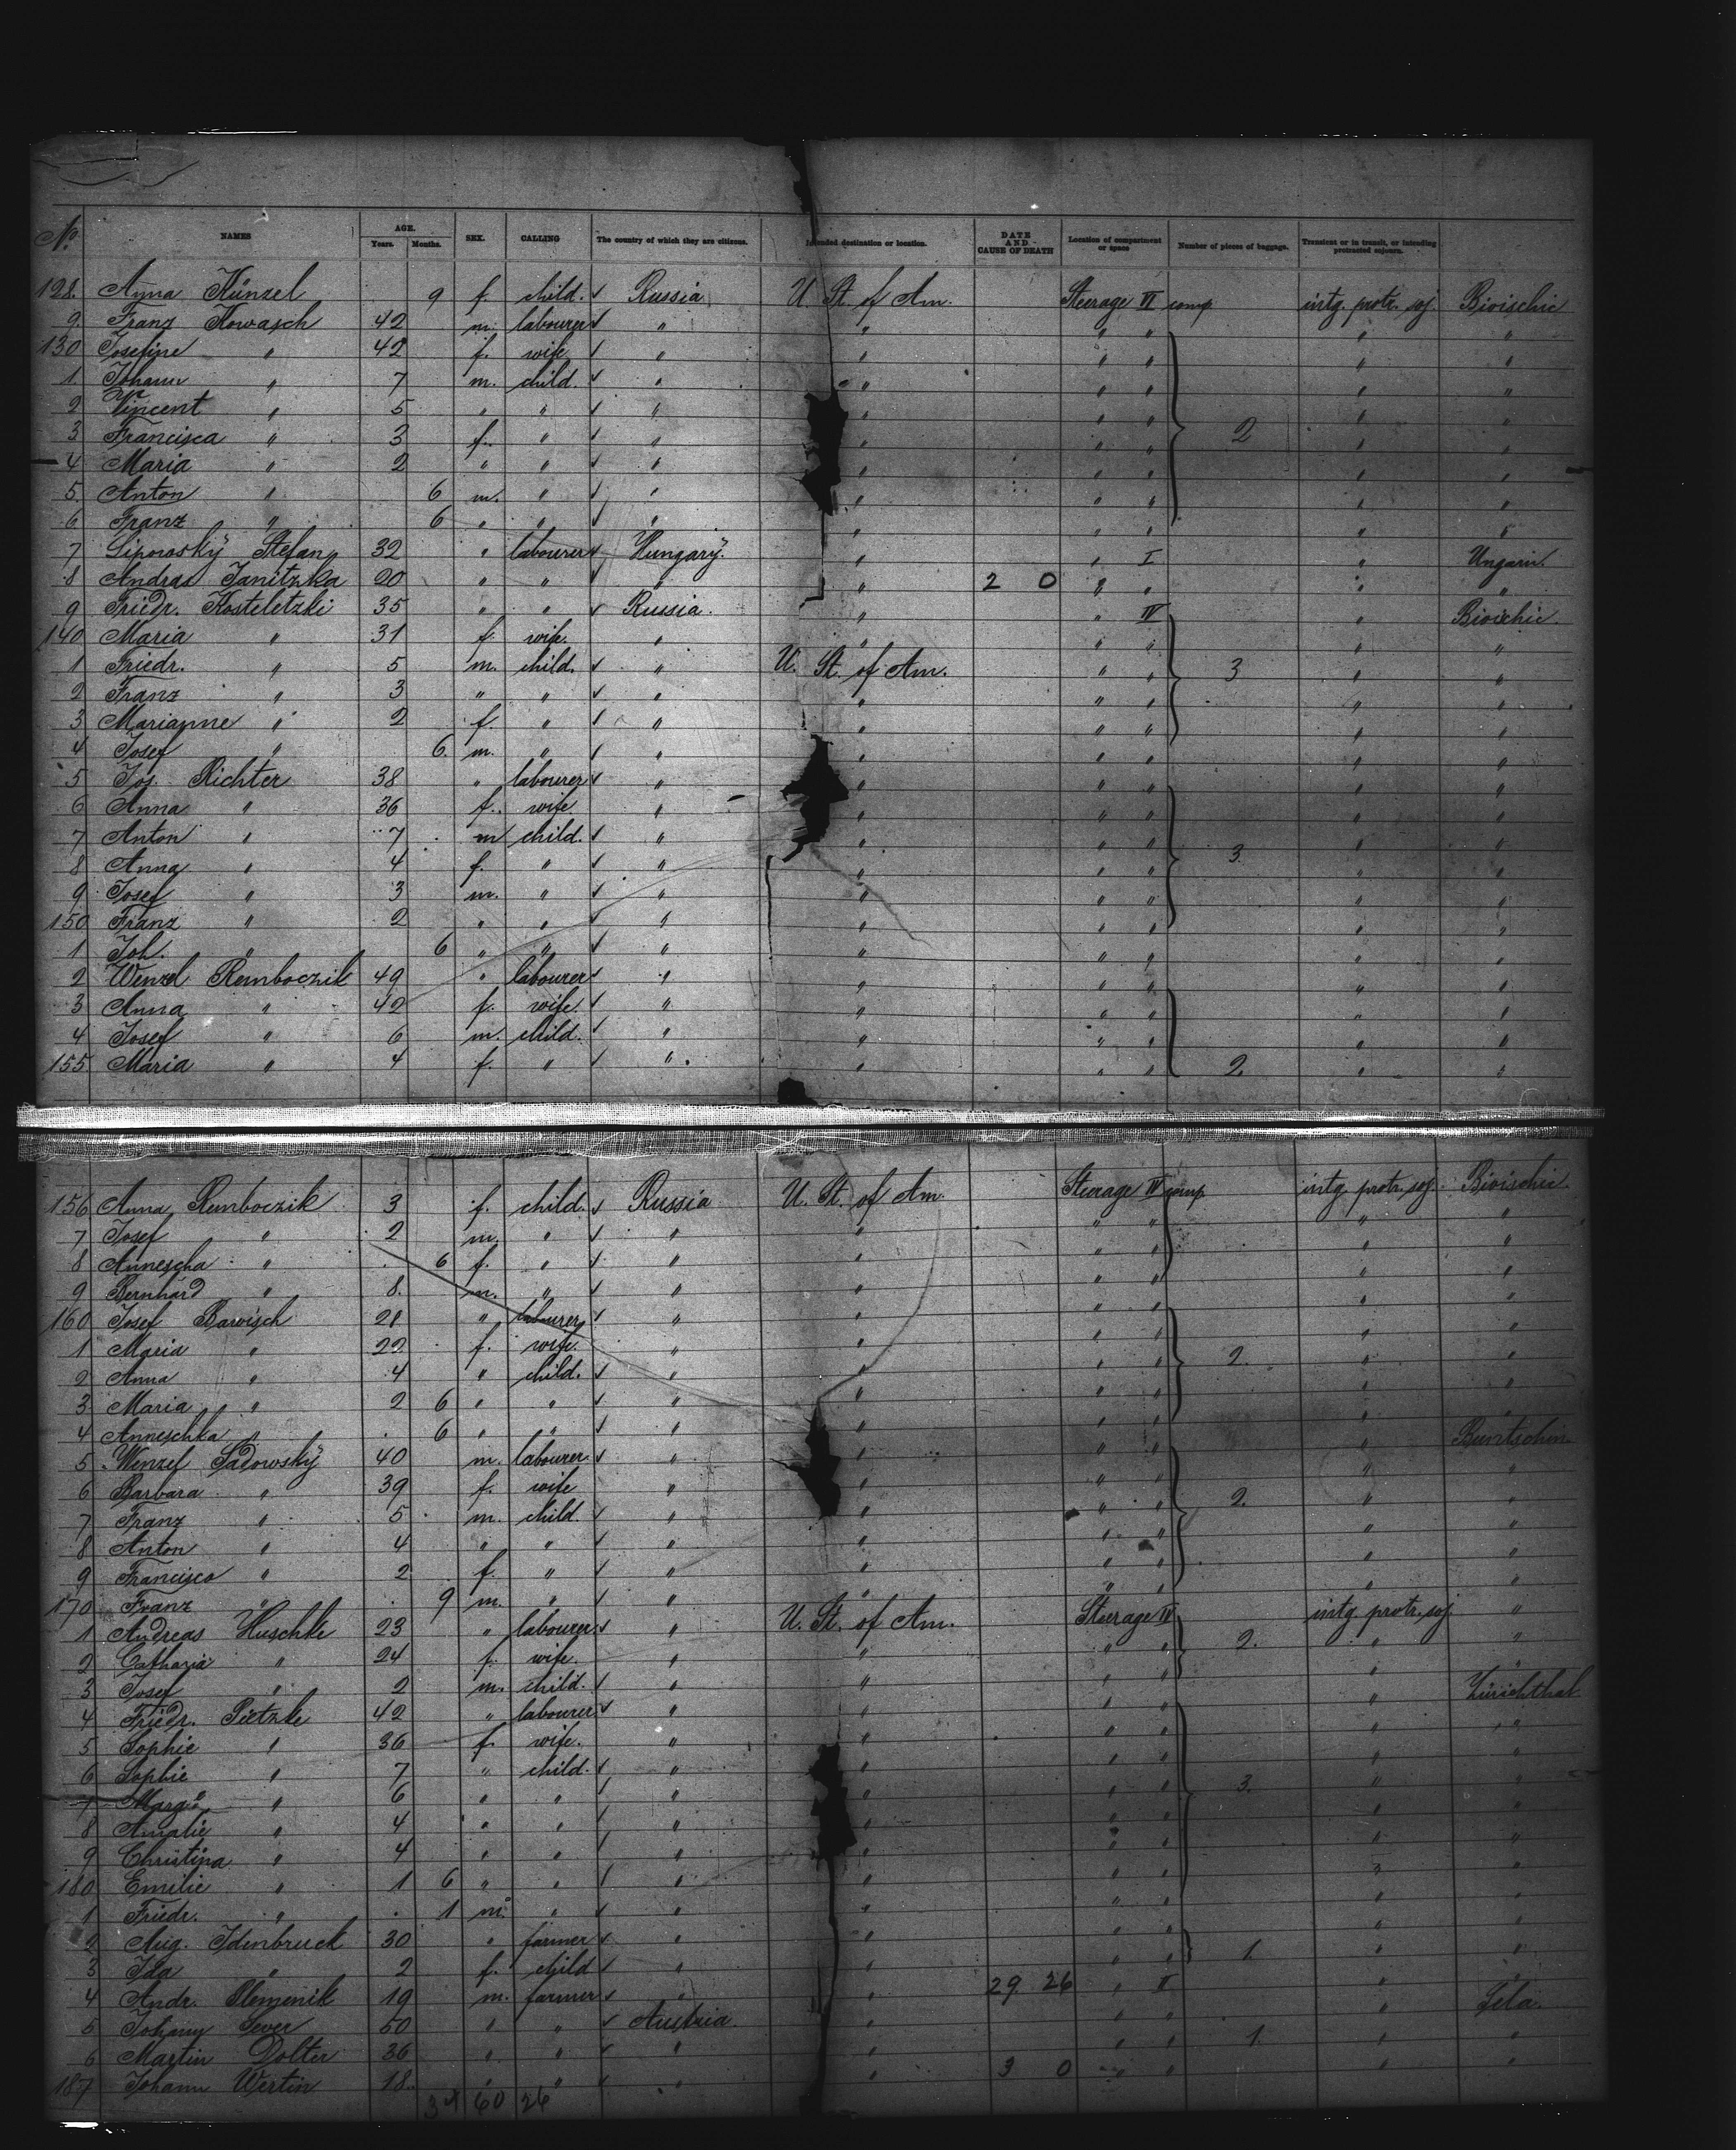 No. NAMES AGE. Years. Months. SEX. CALLING The country of which they are citizens. Intended destination or location. DATE AND CAUSE OF DEATH Location of compartment or space Number of pieces of baggage. Transient or in transit, or intending protracted sojourn.
128. Anna Künzel 9 f. child. ✓ Russia U. St. of Am. Steerage VI comp. intg. protr. soj. Bioischic
9. Franz Kowasch 42 m. labourer ✓ " " " " " "
130 Josefine " 42 f. wife ✓ " " " " " "
1 Johann " 7 m. child. ✓ " " " " " "
2 Vincent " 5 " " ✓ " " " " " "
3 Francisca " 3 f. " ✓ " " " " 2 " "
4 Maria " 2 " " ✓ " " " " " "
5. Anton " 6 m. " ✓ " " " " " "
6 Franz " 6 " " ✓ " " " " " "
7 Lipowský Stefan 32 " labourer ✓ Hungarÿ. " " I " Ungarn.
8 Andras Janitzka 20 " " ✓ " " 2 0 " " " "
9 Friedr. Kosteletzki 35 " " ✓ Russia. " " IV " Bioischic.
140 Maria " 31 f. wife. " " " " " "
1 Friedr. " 5 m. child. ✓ " U. St. of Am. " " 3 " "
2 Franz " 3 " " ✓ " " " " " "
3 Marianne " 2 f. " ✓ " " " " " "
4 Josef " 6. m. " ✓ " " " " " "
5 Jos. Richter 38 " labourer ✓ " " " " " "
6 Anna " 36 f. wife " " " " " "
7 Anton " 7 m child. ✓ " " " " " "
8 Anna " 4 f. " ✓ " " " " 3. " "
9 Josef " 3 m. " ✓ " " " " " "
150 Franz " 2 " " ✓ " " " " " "
1 Joh. " 6 " " ✓ " " " " " "
2 Wenzel Remboczik 49 " labourer ✓ " " " " " "
3 Anna " 42 f. wife. ✓ " " " " " "
4 Josef " 6 m. child. ✓ " " " " " "
155. Maria " 4 f. " ✓ " " " " 2. " "
156 Anna Remboczik 3 f. child. ✓ Russia U. St. of Am. Steerage IV comp. intg. protr. soj. Bioischic.
7 Josef " 2 m. " ✓ " " " " " "
8 Annescha " 6 f. " ✓ " " " " " "
9 Bernhard " 8. m. " ✓ " " " " " "
160 Josef Barvisch 28 " labourer ✓ " " " " " "
1 Maria " 22 f. wife. " " " " " "
2 Anna " 4 " child. ✓ " " " " 2. " "
3 Maria " 2 6 " " ✓ " " " " " "
4 Anneschka " 6 " " ✓ " " " " " "
5 Wenzel Sadowskÿ 40 m. labourer ✓ " " " " " Buntschin
6 Barbara " 39 f. wife " " " " " "
7 Franz " 5 m. child. ✓ " " " " 2. " "
8 Anton " 4 " " ✓ " " " " " "
9 Francisco " 2 f. " ✓ " " " " " "
170 Franz " 9 m. " ✓ " " " " " "
1 Andreas Huschke 23 " labourer ✓ " U. St. of Am. Steerage IV intg. protr. soj. "
2 Catharia " 24 f. wife. " " " " 2. " "
3 Josef " 2 m. child. ✓ " " " " " "
4 Friedr. Pietzke 42 " labourer ✓ " " " " " Zürichthal
5 Sophie " 36 f. wife. " " " " " "
6 Sophie " 7 " child. ✓ " " " " " "
7 " 6 " " ✓ " " " " 3. " "
8 Amalie " 4 " " ✓ " " " " " "
9 Christina " 4 " " ✓ " " " " " "
180 Emilie " 1 6 " " ✓ " " " " " "
1 Friedr. " 1 m. " ✓ " " " " " "
2 Aug. Idenbruck 30 " farmer ✓ " " " " " "
3 Ida " 2 f. child ✓ " " " " 1. " "
4 Andr. Klemenik 19 m. farmer ✓ " " 29 26 " II " "
5 Johann Sever 50 " " ✓ Austria " " " " Sela.
6 Martin Dolter 36 " " ✓ " " " " 1. " "
187 Johann Wertin 18. " " ✓ " " 3 0 " " " "
34 60 26